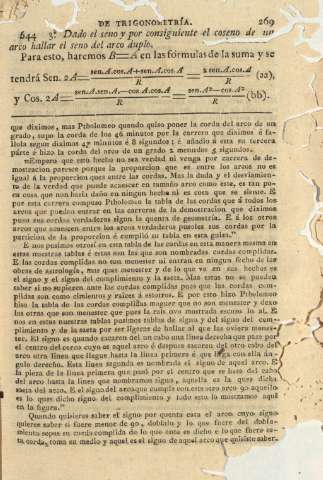 DE TRIGONOMETRÍA. 269
644 3.º Dado el seno y por consiguiente el coseno de un
arco hallar el seno del arco duplo.
Para esto, haremos B=A en las fórmulas de la suma y se
tendrá Sen. 2A = sen.A.cos.A+sen.A.cos.A / R = 2 sen.A.cos.A / R (aa),
y Cos. 2A = sen.A.sen.A.—cos.A.cos.A / R = sen.A²—cos.A² / R (bb).
que diximos, mas Ptholomeo quando quiso poner la corda del arco de un
grado, supo la corda de los 46 minutos por la carrera que diximos é fa-
llola segun diximos 47 minutos é 8 segundos; é añadio á esta su tercera
parte é hizo la corda del arco de un grado 2 menudos 5 segundos.
"Empero que esto hecho no sea verdad ni venga por carrera de de-
mostracion parece porque la proporcion que es entre los arcos no es
igual á la proporcion que es entre las cordas. Mas la duda y el desviamien-
to de la verdad que puede acaescer en tamaño arco como este, es tan po-
ca cosa que non hará daño en ningun hecho ni es cosa que se siente. E
por esta carrera compuso Ptholomeo la tabla de las cordas que á todos los
arcos que pueden entrar en las carreras de la demostracion que diximos
puso sus cordas verdaderas segun la qüenta de geometria. E á los otros
arcos que acaescen entre los arcos verdaderos pusoles sus cordas por la
particion de la proporcion é cumplió su tabla en esta guisa."
E nos pusimos otrosí en esta tabla de las cordas en esta manera mesma en
estas nuestras tablas é estas son las que son nombradas cordas complidas.
E las cordas complidas no son menester ni entran en ningun fecho de las
obras de astrología, mas ques menester y de lo que va en sus hechos es
el signo y el signo del complimiento y la saeta. Mas estas no se pueden
saber si no supiere ante las cordas complidas pues que las cordas com-
plidas son como cimientos y raices á estotros. E por esto hizo Ptholomeo
hizo la tabla de las cordas complidas maguer que no son menester y dexo
las otras que son menester que pues la raiz ovo mostrada escuso lo al. E
nos en estas nuestras tablas pusimos tablas de signo y del signo del com-
plimiento y de la saeta por ser ligeras de hallar al que las oviere menes-
ter. El signo es quando sacaren del un cabo una linea derecha que pase por
el centro del cerco cuyo es aquel arco é despues sacaren del otro cabo del
arco otra linea que llegue hasta la linea primera é que haga con ella án-
gulo derecho. Esta linea segunda es nombrada el signo de aquel arco. E
la pieza de la linea primera que pasó por el centro que se haze del cabo
del arco hasta la linea que nombramos signo, aquella es la ques dicha
saeta del arco. E el signo del arco que cumple con este otro arco 90 aquello
es lo ques dicho signo del complimiento y todo esto lo mostramos aquí
en la figura."
Quando quisieres saber el signo por qüenta esta el arco cuyo signo
quieres saber si fuere menor de 90, doblalo y lo que fuere del dobla-
miento sepas su corda complida de lo que esta es dicho é lo que fuere es-
ta corda, toma su medio y aquel es el signo de aquel arco que quisiste saber.